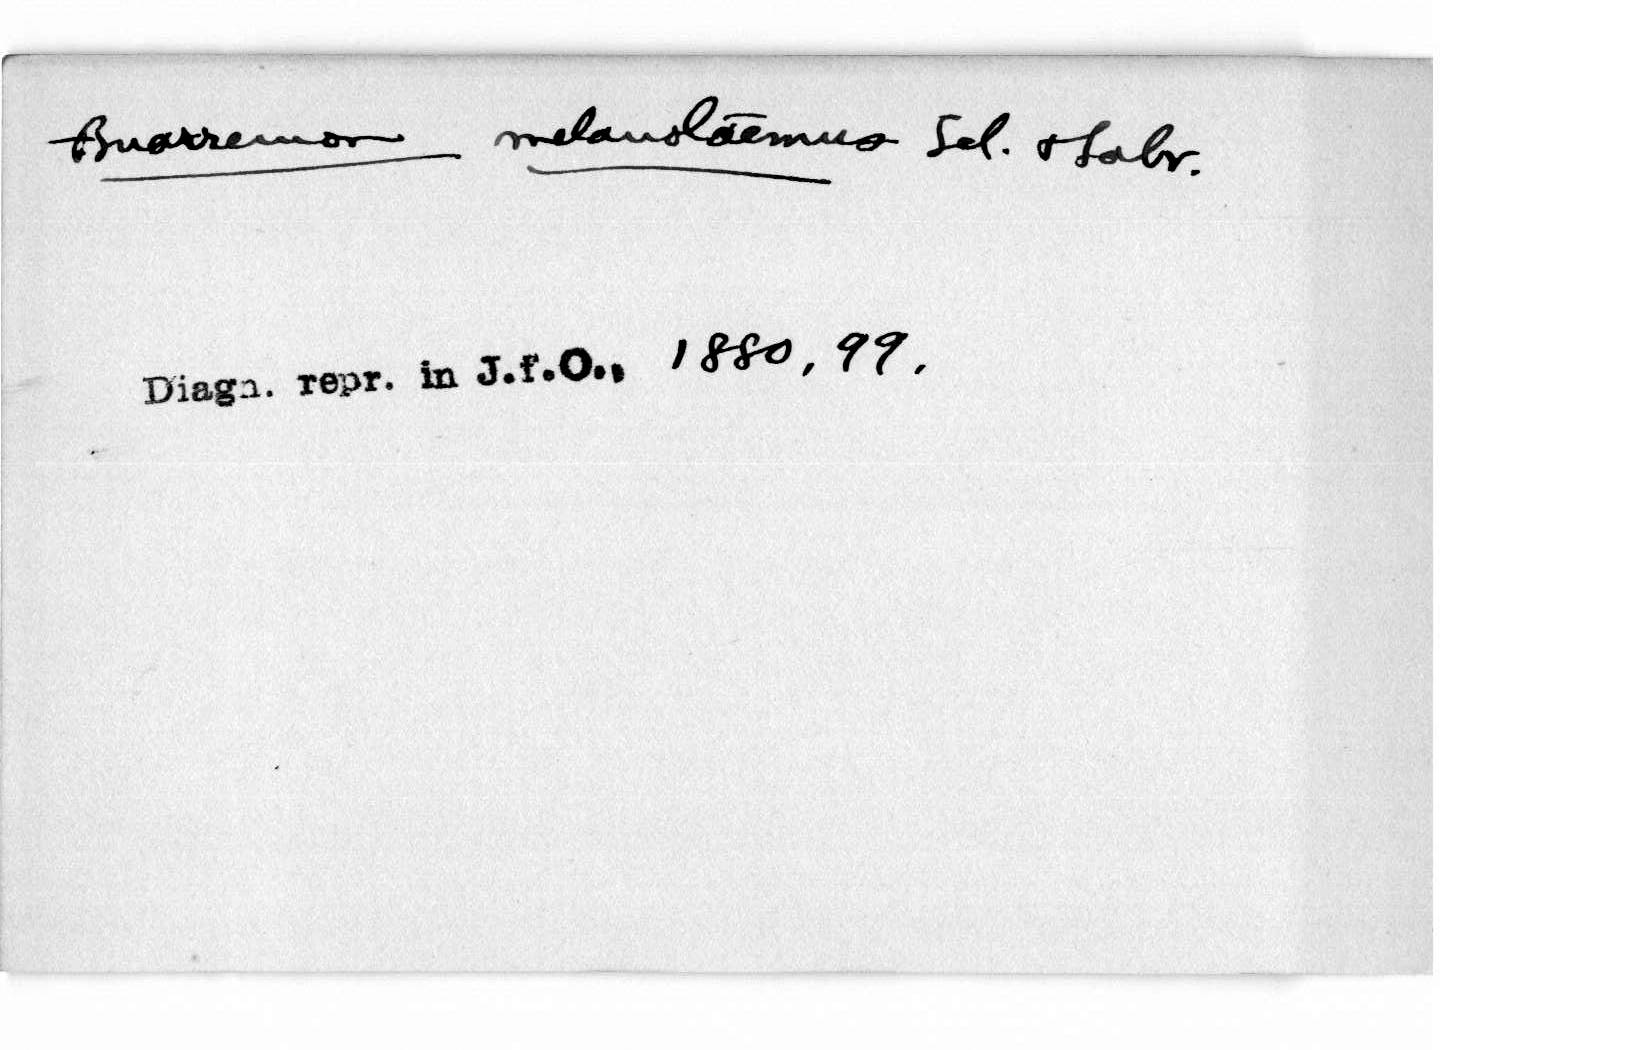 Buarremon melanolaemus Scl. & Salv.
Diagn. repr. in J.f.O., 1880, 99.